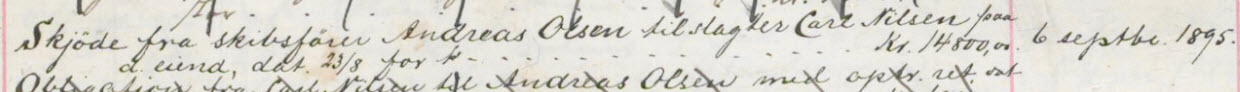 Skjöde fra skibsförer Andreas Olsen til slagter Carl Nilsen paa
d. eiend, dat. 23/8 for k. . . . . . . . . . . Kr. 14800,00. 6 septbr. 1895.
Obligation fra Carl Nilsen til Andreas Olsen med optr. ret. dat